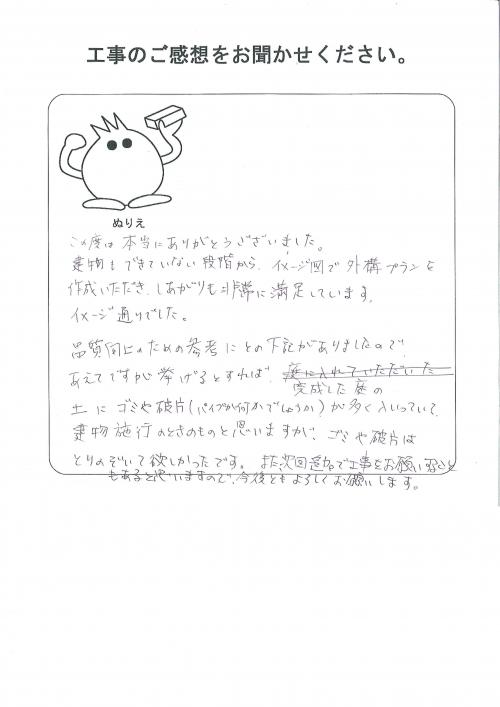 工事のご感想をお聞かせください。
ぬりえ
この度は本当にありがとうございました。
建物もできていない段階から、イメージ図で外構プランを
作成いただき、しあがりも非常に満足しています。
イメージ通りでした。
品質向上のための参考にとの下記がありましたので、
あえてですが挙げるとすれば、庭に入れていただいた
完成した庭の
土にゴミや破片(パイプか何かでしょうか)が多く入いっていて、
建物施行のときのものと思いますが、ゴミや破片は
とりのぞいて欲しかったです。また次回追加で工事をお願いすること
もあると思いますので、今後ともよろしくお願いします。